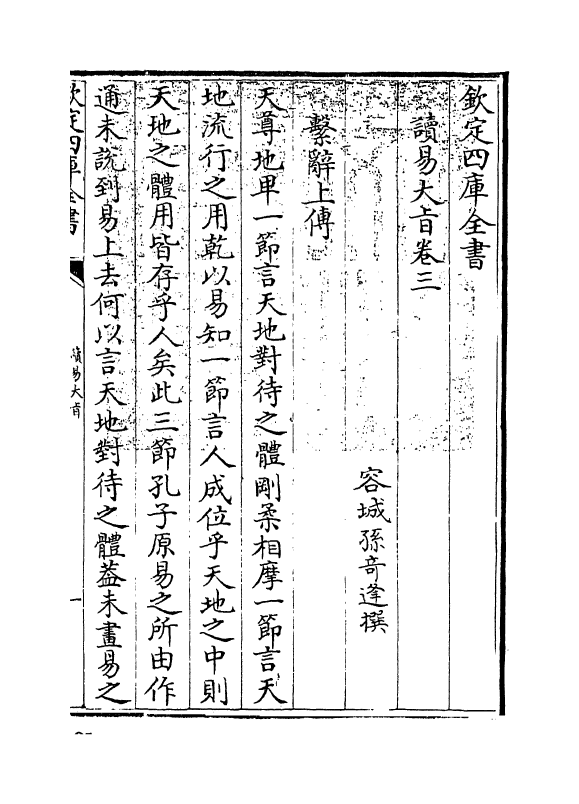 欽定四庫全書
讀易大旨卷三
容城孫奇逢撰
繫辭上傳
天尊地卑一節言天地對待之體剛柔相摩一節言天
地流行之用乾以易知一節言人成位乎天地之中則
天地之體用皆存乎人矣此三節孔子原易之所由作
通未說到易上去何以言天地對待之體葢未畫易之
欽定四庫全書
讀易大旨
一